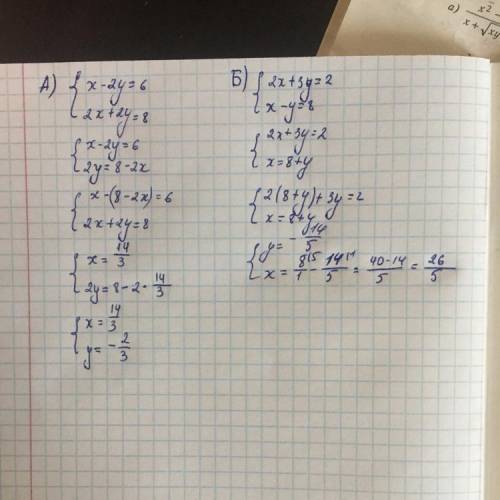 а) x² -
x + √xy
А) { x - 2y = 6
2x + 2y = 8
{ x - 2y = 6
2y = 8 - 2x
{ x - (8 - 2x) = 6
2x + 2y = 8
{ x = 14/3
2y = 8 - 2 · 14/3
{ x = 14/3
y = - 2/3
Б) { 2x + 3y = 2
x - y = 8
{ 2x + 3y = 2
x = 8 + y
{ 2(8 + y) + 3y = 2
x = 8 + y
{ y = - 14/5
x = 8^{15}/1 - 14^{11}/5 = 40 - 14/5 = 26/5